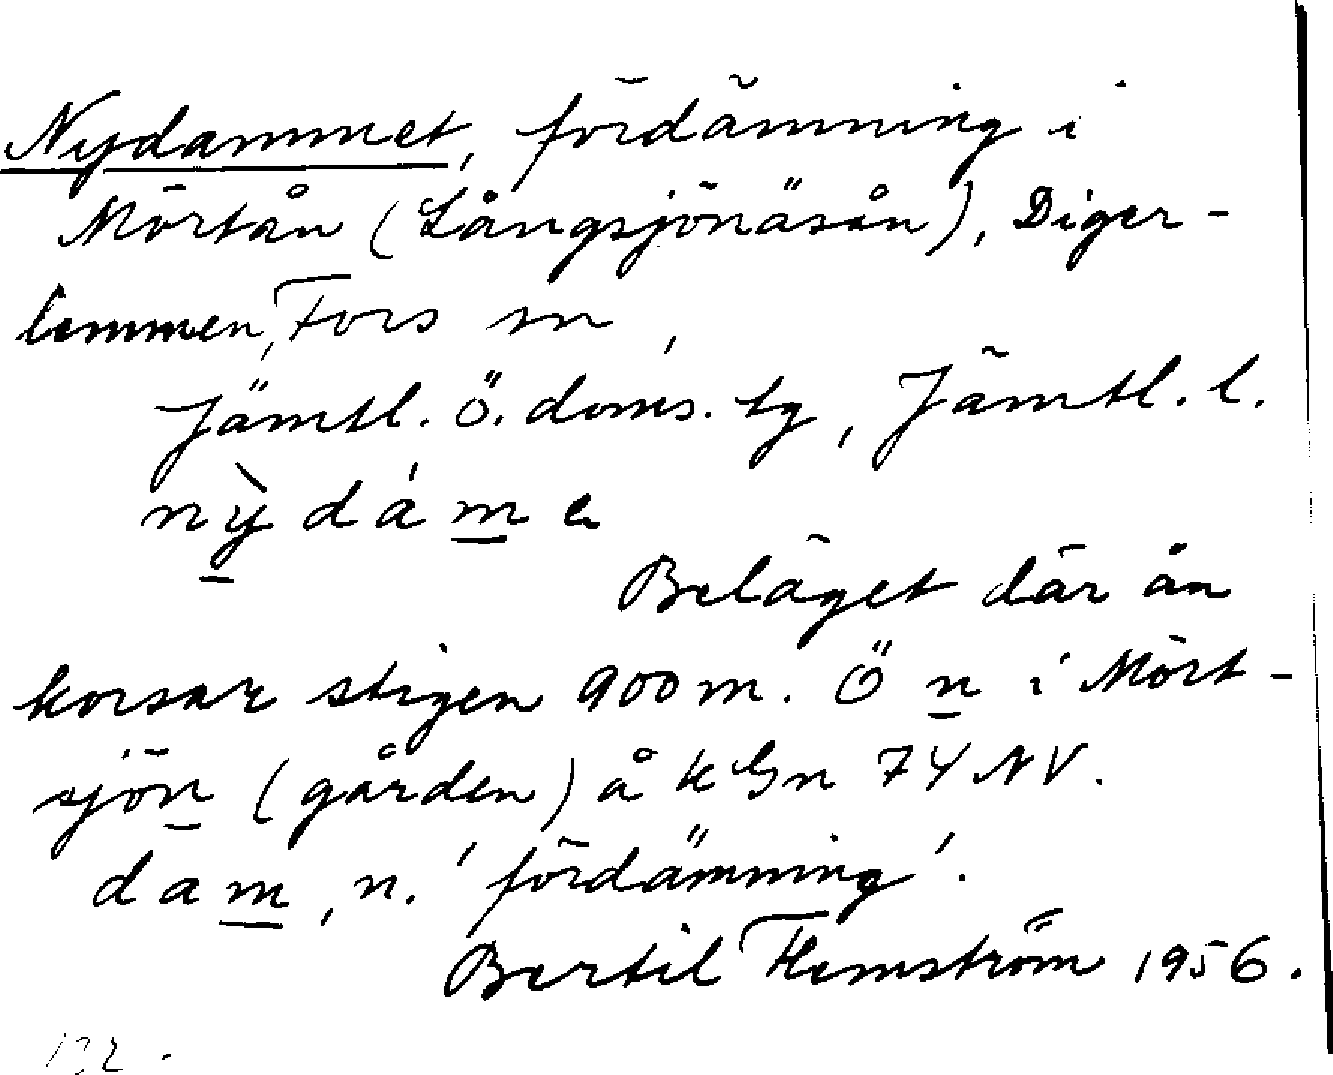 Nydammet, fördämning i
Mörtån (Långsjönäsån), Diger-
lemmen, Fors sn,
Jämtl. Ö. doms. tg, Jämtl. l.
nỳdámε
Beläget där ån
korsar stigen 900 m. Ö n i Mört-
sjön (gården) å kGn 74 NV.
dam, n. 'fördämning'.
Bertil Flemström 1956.